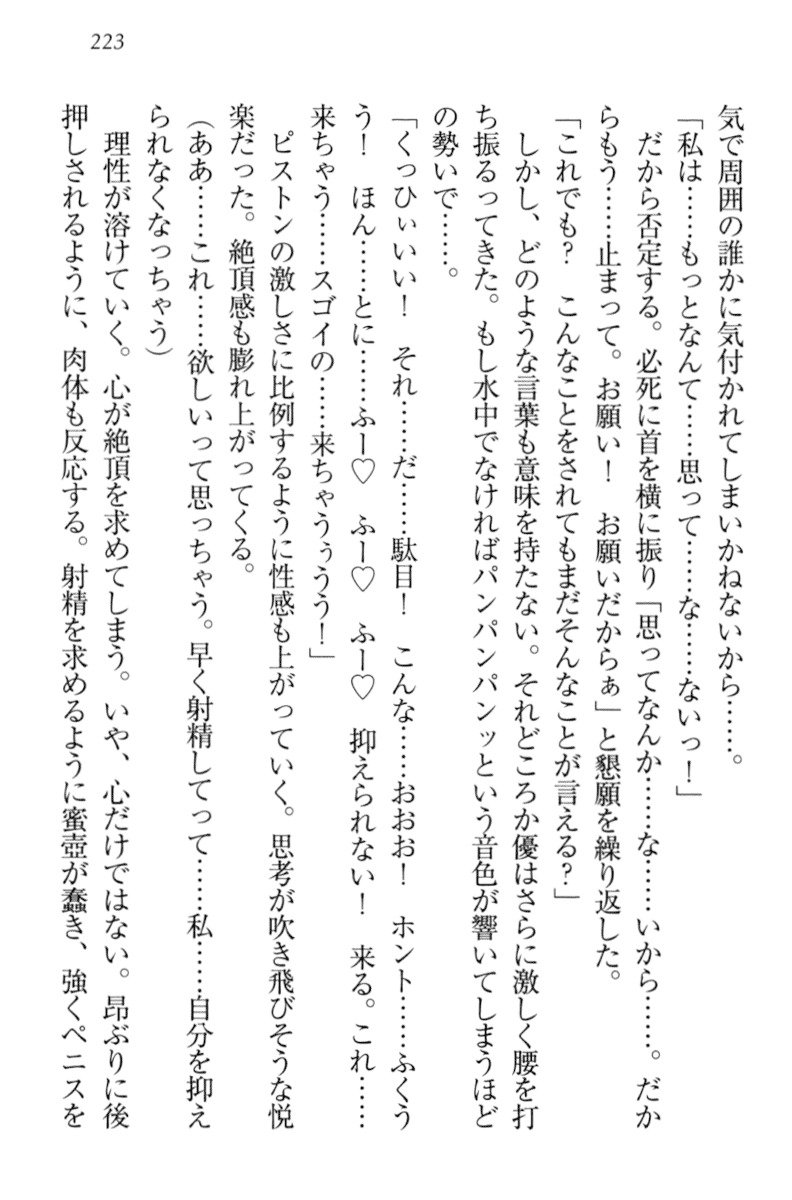 223
気で周囲の誰かに気付かれてしまいかねないから……。
「私は……もっとなんて……思って……な……ないっ!」
だから否定する。必死に首を横に振り「思ってなんか……な……いから……。だか
らもう……止まって。お願い! お願いだからぁ」と懇願を繰り返した。
「これでも? こんなことをされてもまだそんなことが言える?」
しかし、どのような言葉も意味を持たない。それどころか優はさらに激しく腰を打
ち振るってきた。もし水中でなければパンパンパンッという音色が響いてしまうほど
の勢いで……。
「くっひぃいい! それ……だ……駄目! こんな……おおお! ホント……ふくう
う! ほん……とに……ふー♡ ふー♡ ふー♡ 抑えられない! 来る。これ……
来ちゃう……スゴイの……来ちゃうぅうう!」
ピストンの激しさに比例するように性感も上がっていく。思考が吹き飛びそうな悦
楽だった。絶頂感も膨れ上がってくる。
(ああ……これ……欲しいって思っちゃう。早く射精してって……私……自分を抑え
られなくなっちゃう)
理性が溶けていく。心が絶頂を求めてしまう。いや、心だけではない。昂ぶりに後
押しされるように、肉体も反応する。射精を求めるように蜜壺が蠢き、強くペニスを